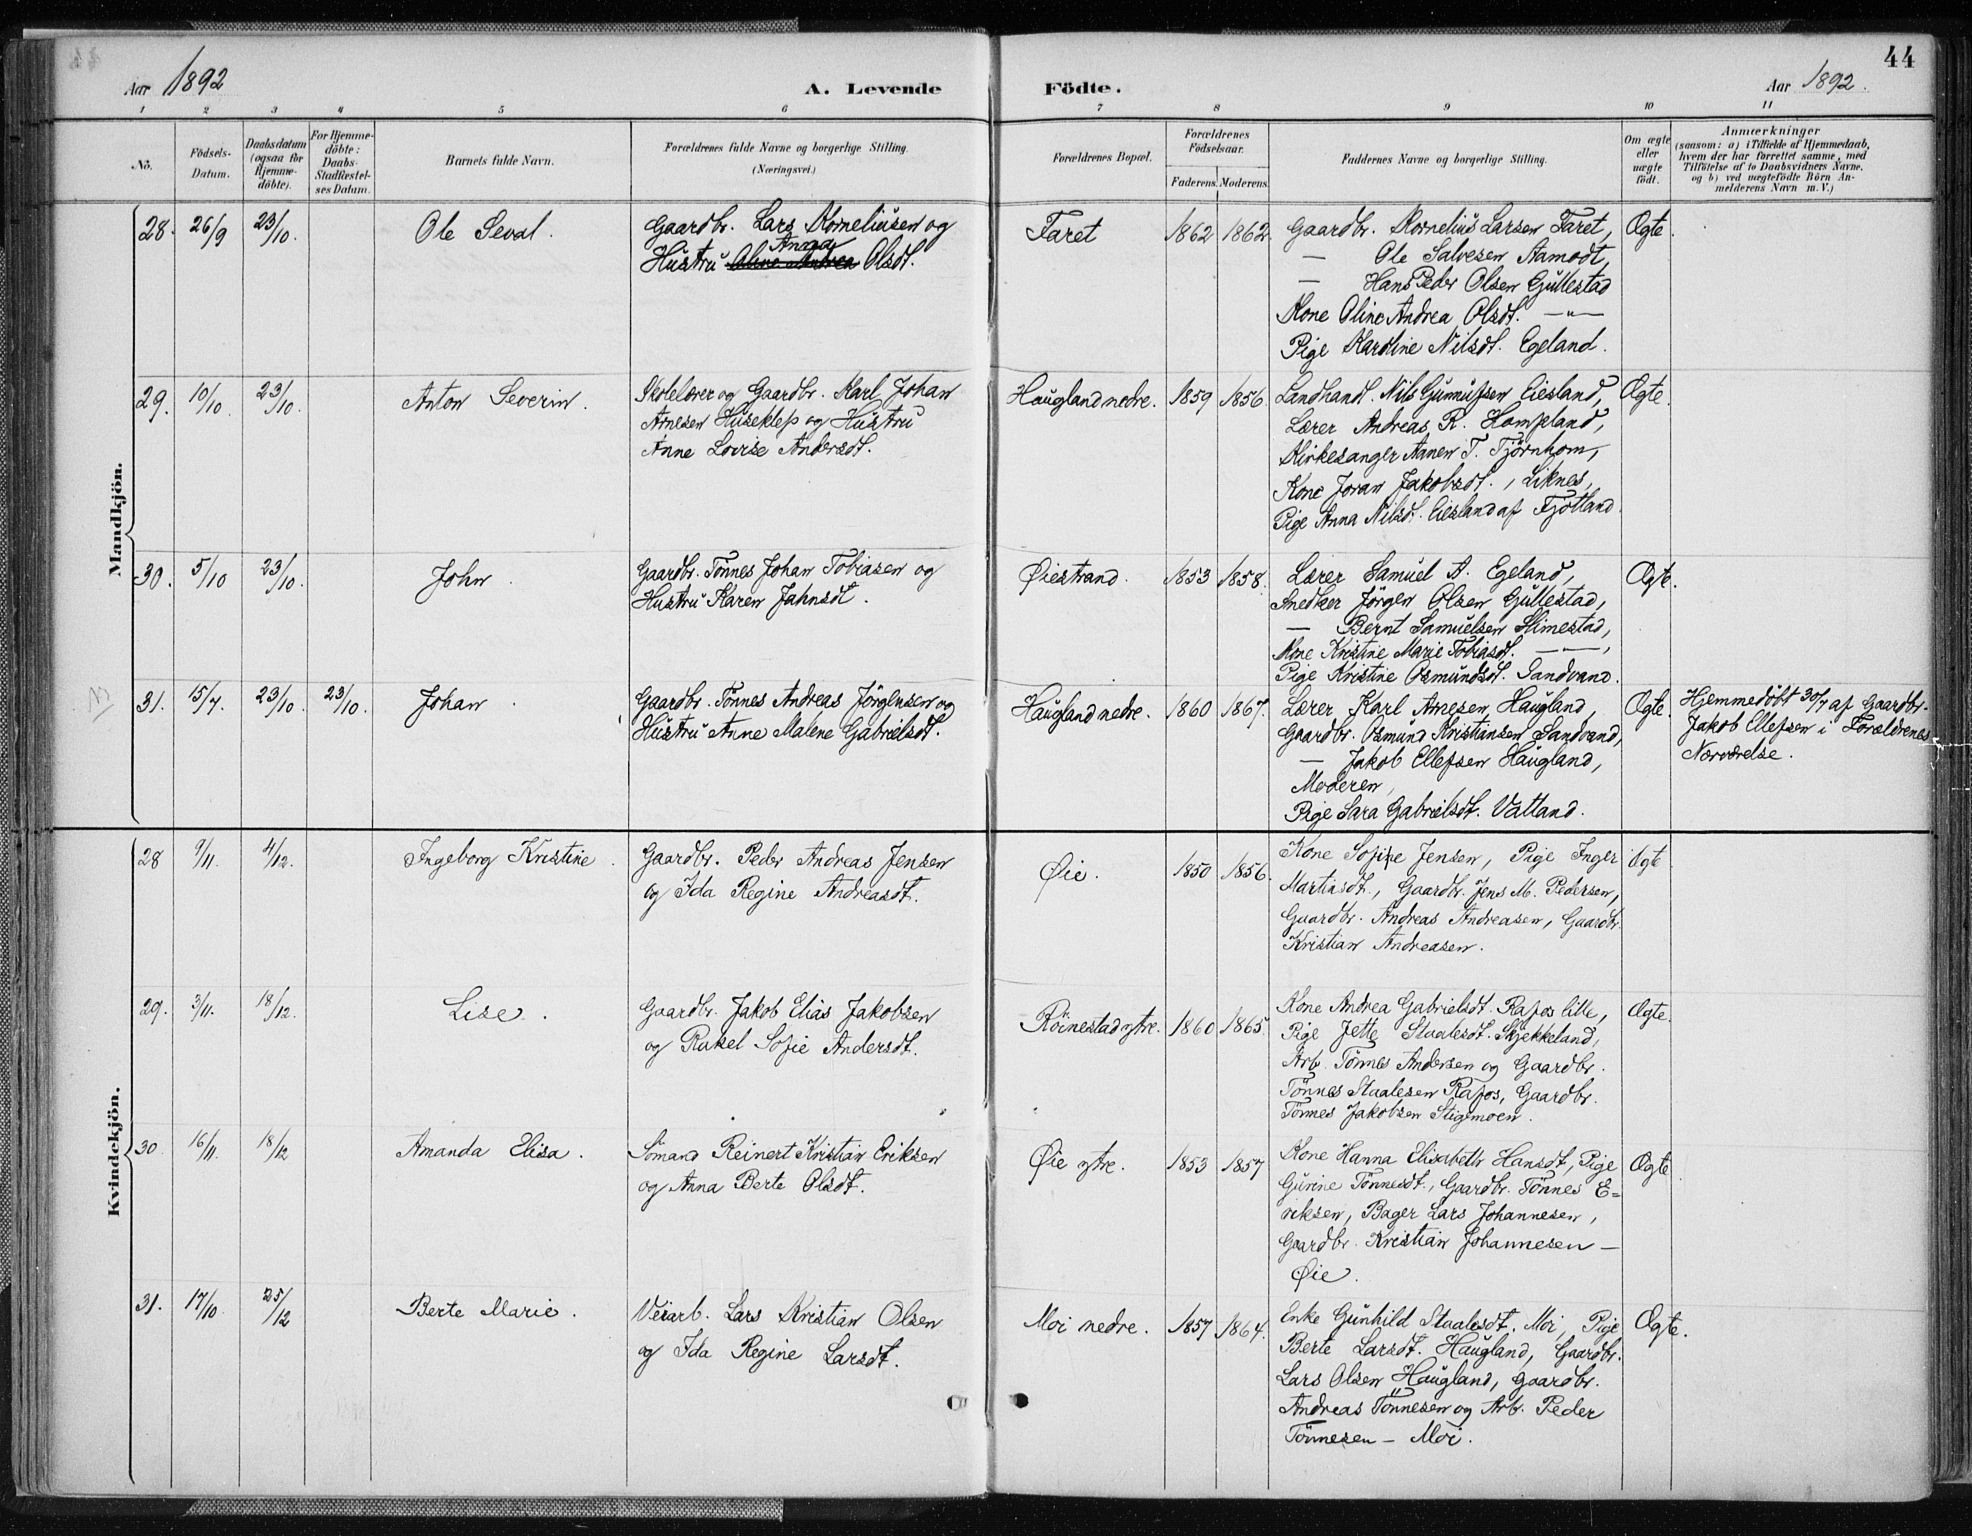 44
Aar 1892
A. Levende
Födte.
Aar 1892.
1 2 3 4 5 6 7 8 9 10 11
No.
Födsels-
Datum.
Daabsdatum
(ogsaa for
Hjemme-
döbte).
For Hjemme-
döbte:
Daabs-
Stadfæstel-
ses Datum.
Barnets fulde Navn.
Forældrenes fulde Navne og borgerlige Stilling.
(Næringsvei.)
Forældrenes Bopæl.
Forældrenes
Födselsaar.
Faderens. Moderens.
Faddernes Navne og borgerlige Stilling.
Om ægte
eller
uægte
födt.
Anmærkninger
(saasom: a) i Tilfælde af Hjemmedaab,
hvem der har forrettet samme, med
Tilföielse af to Daabsvidners Navne,
og b) ved uægtefödte Börn An-
melderens Navn m. V.)
Mandkjön.
28. 26/9 23/10. Ole Seval.
Gaardbr. Lars Korneliusen og
Anna
Hustru Oline Andrea Olsdt.
Faret 1862 1862.
Gaardbr. Kornelius Larsen Faret,
— Ole Salvesen Aamodt,
— Hans Peder Olsen Gullestad
Kone Oline Andrea Olsdt. —„—
Pige Karoline Nilsdt. Egeland.
Ægte
29. 10/10. 23/10. Anton Severin.
Skolelærer og Gaardbr. Karl Johan
Arnesen Huseklep og Hustru
Anne Lovise Andersdt.
Haugland nedre. 1859 1856.
Landhandl. Nils Gunnufsen Eiesland,
Lærer Andreas R. Hompland,
Kirkesanger Aanen T. Tjörnhom,
Kone Joran Jakobsdt., Liknes,
Pige Anna Nilsdt. Eiesland af Fjotland.
Ægte.
30. 5/10 23/10. John.
Gaardbr. Tönnes Johan Tobiasen og
Hustru Karen Jahnsdt.
Øiestrand. 1853 1858.
Lærer Samuel A. Egeland,
Snedker Jörgen Olsen Gullestad,
— Bernt Samuelsen Slimestad,
Kone Kristine Marie Tobiasdt. —„—,
Pige Kristine Osmundsdt. Sandvand.
Ægte.
31. 15/7. 23/10. 23/10. Johan.
Gaardbr. Tönnes Andreas Jörgensen og
Hustru Anne Malene Gabrielsdt.
Haugland nedre. 1860 1867.
Lærer Karl Arnesen Haugland,
Gaardbr. Osmund Kristiansen Sandvand,
— Jakob Ellefsen Haugland,
Moderen,
Pige Sara Gabrielsdt. Vatland.
Ægte.
Hjemmedöbt 30/7 af Gaardbr.
Jakob Ellefsen i Forældrenes
Nærværelse.
Kvindekjön.
28 9/11. 4/12. Ingeborg Kristine.
Gaardbr. Peder Andreas Jensen
og Ida Regine Andreasdt.
Øie. 1850 1856.
Kone Sofie Jensen, Pige Inger
Martiasdt., Gaardbr. Jens M. Pedersen,
Gaardbr. Andreas Andreasen, Gaardbr.
Kristian Andreasen.
Ægte
29. 3/11. 18/12. Lise.
Gaardbr. Jakob Elias Jakobsen
og Rakel Sofie Andersdt.
Röinestad ytre. 1860 1865.
Kone Andrea Gabrielsdt. Rafos lille,
Pige Jette Staalesdt. Skjekkeland,
Arb. Tönnes Andersen og Gaardbr.
Tönnes Staalesen Rafos, Gaardbr.
Tönnes Jakobsen Stigemoen.
Ægte.
30. 16/11. 18/12 Amanda Elisa.
Sömand Reinert Kristian Eriksen
og Anna Berte Olsdt.
Øie ytre. 1853 1857
Kone Hanna Elisabeth Hansdt, Pige
Gurine Tönnesdt., Gaardbr. Tönnes E=
riksen, Bager Lars Johannesen,
Gaardbr. Kristian Johannesen —
Øie.
Ægte
31. 17/10. 25/12 Berte Marie.
Veiarb. Lars Kristian Olsen
og Ida Regine Larsdt.
Moi nedre. 1857 1864.
Enke Gunhild Staalesdt. Moi, Pige
Berte Larsdt. Haugland, Gaardbr.
Lars Olsen Haugland, Gaardbr.
Andreas Tönnesen og Arb. Peder
Tönnesen — Moi.
Ægte.